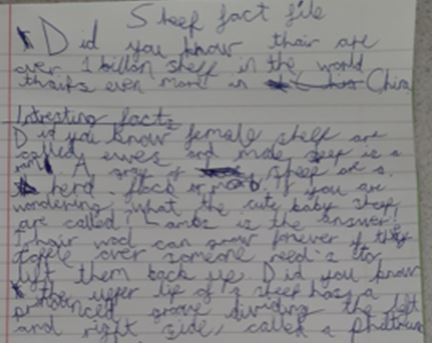 Sheep fact file
Did you know thair are
over 1 billon sheff in the world
thairs even more in China
Intresting facts
Did you know female sheff are
called ewes and male seep is a
A grop of sheep are a
herd, flock or mob. If you are
wondering what the cute baby sheep
are called Lambs is the answer.
Thair wool can grow forever if they
topple over someone need's to
lift them back up. Did you know
the upper lip of a sheep has a
pronounced groove dividing the left
and right side, called a philtrum